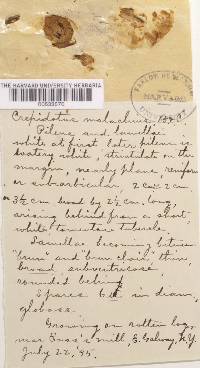 THE HARVARD UNIVERSITY HERBARIA
HARVARD
Crepidotus malachius B&C
Pileus and lamellae
white at first later pileus is
watery white, striatulate on the
margin, nearly plane reniform
or suborbicular, 2 cm - 2 cm.
3½ cm broad by 2½ cm long,
arising behind from a short
white tomentose tubercle.
Lamellae becoming between
"brun" and "brun clair" thin,
broad, subventricose
rounded behind
Spores 6 in diam.
globose.
Growing on rotten log,
near Foss's mill, E. Galway, N.Y.
July 22, '95.